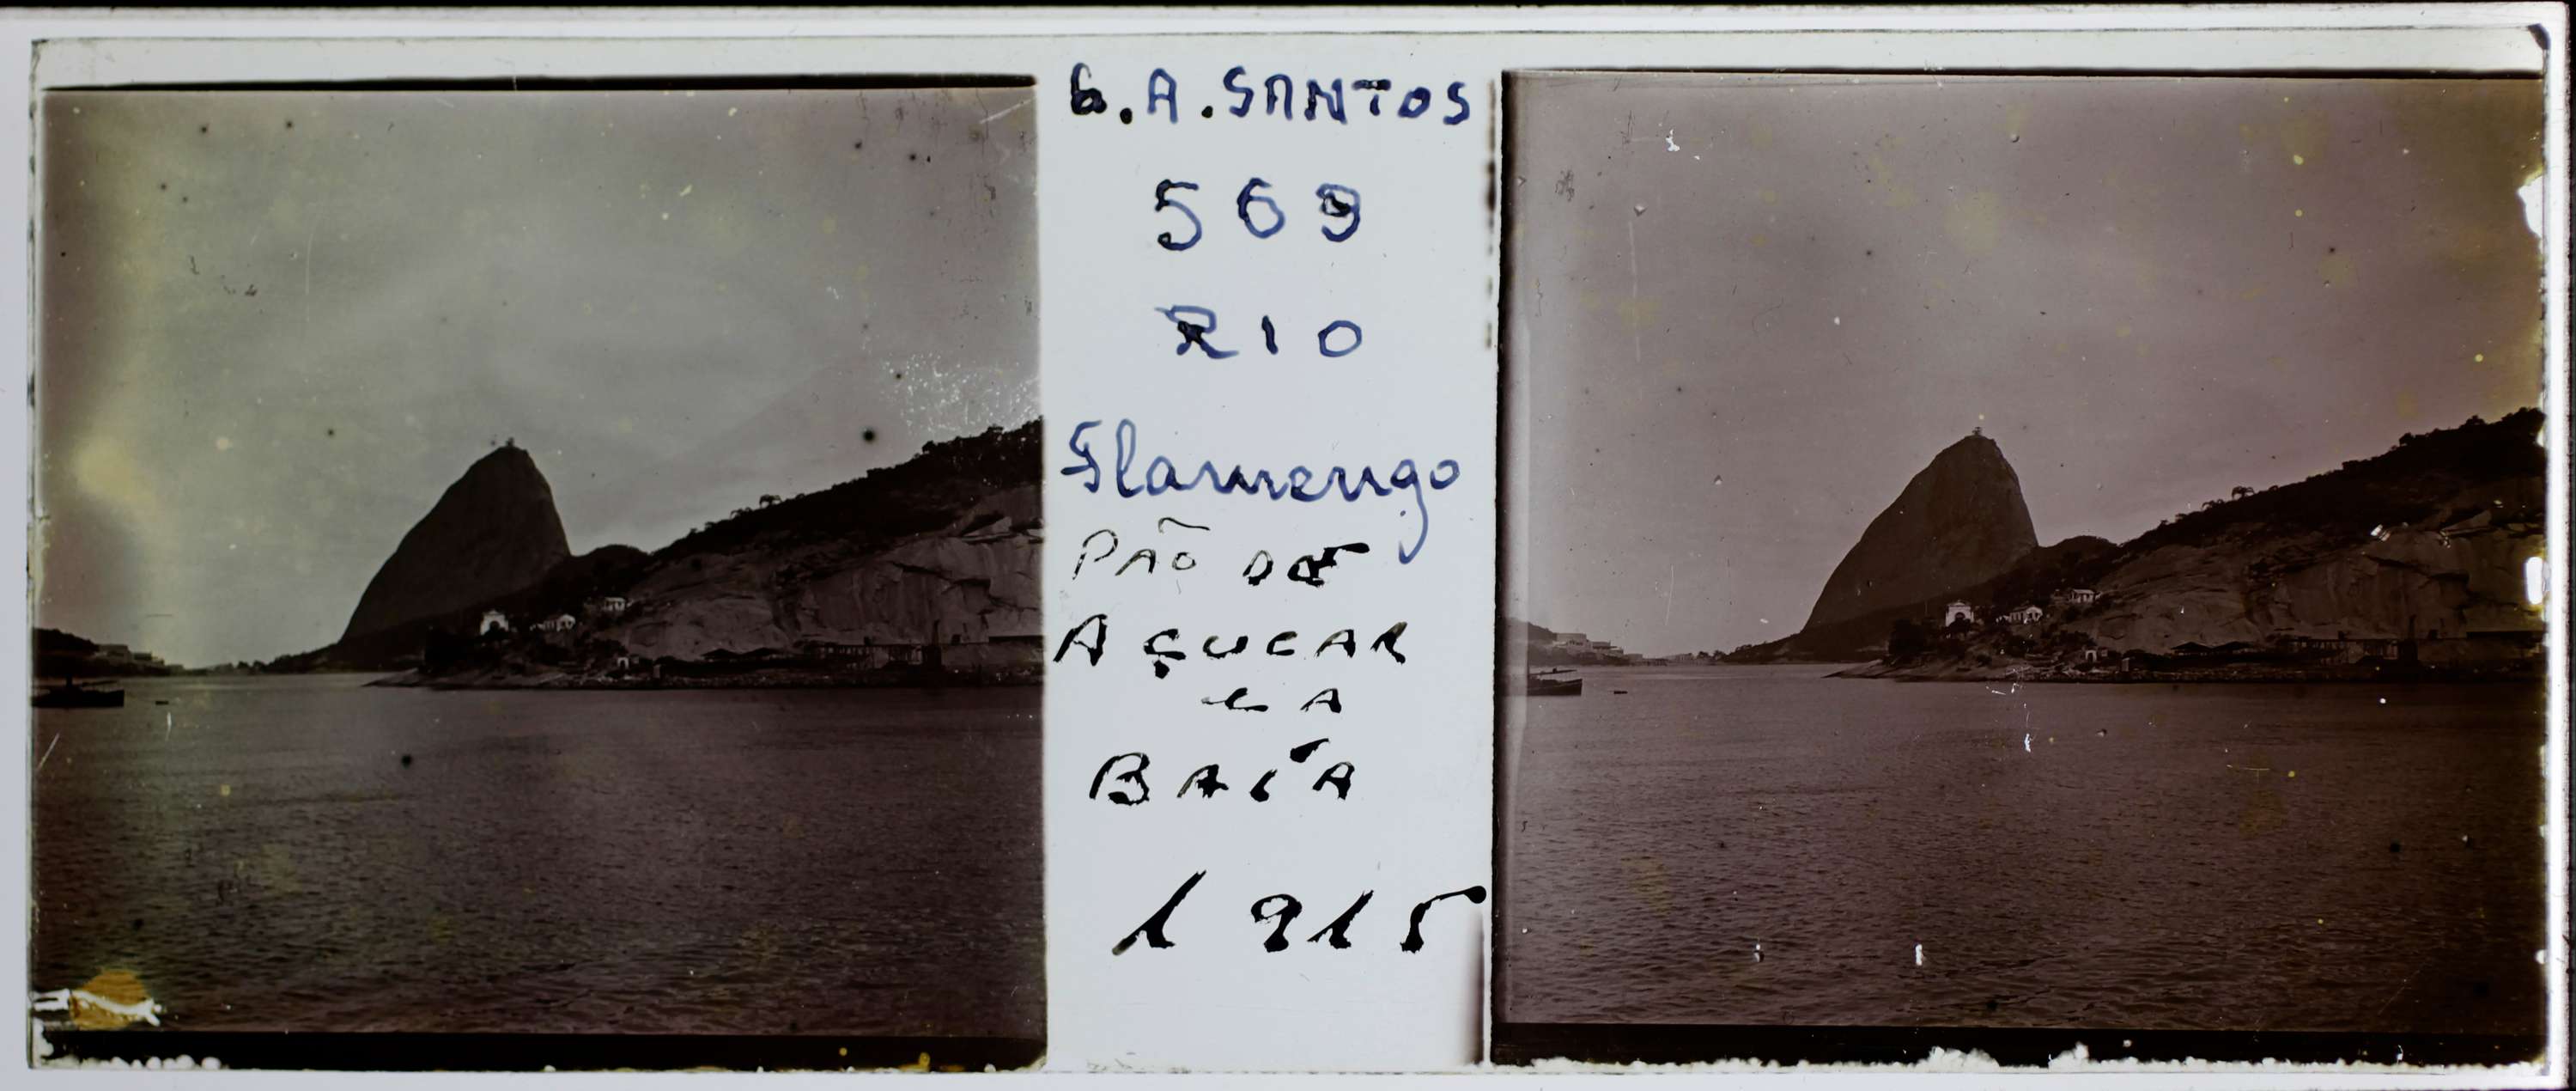 G. A. SANTOS
569
RIO
Flamengo
PÃO DE
AÇUCAR
E A
BAÍA
1915